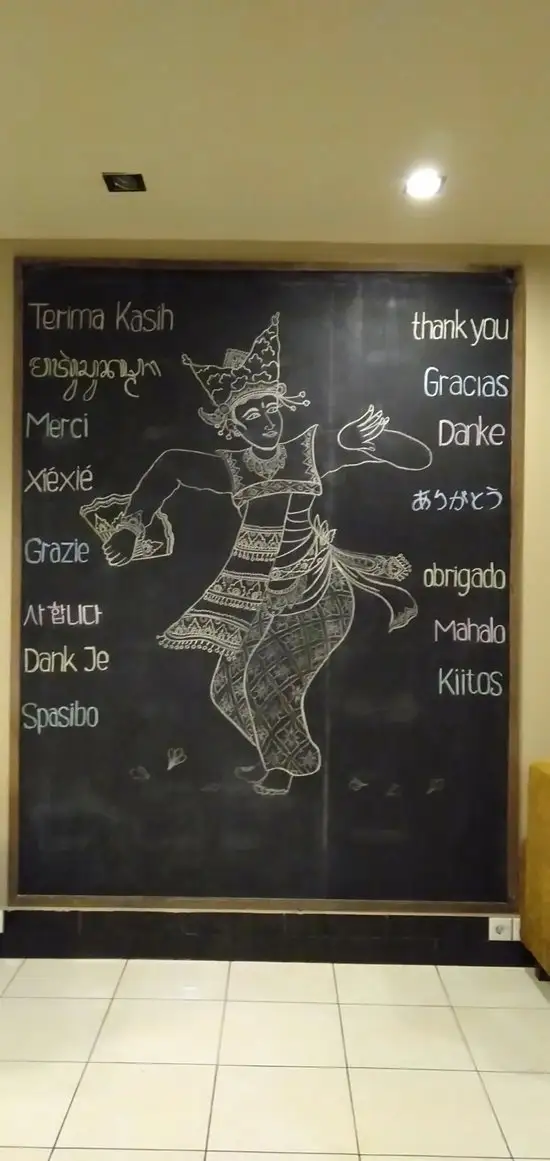 Terima Kasih
Merci
xiéxié
Grazie
사합니다
Dank Je
Spasibo
thank you
Gracias
Danke
ありがとう
obrigado
Mahalo
Kiitos